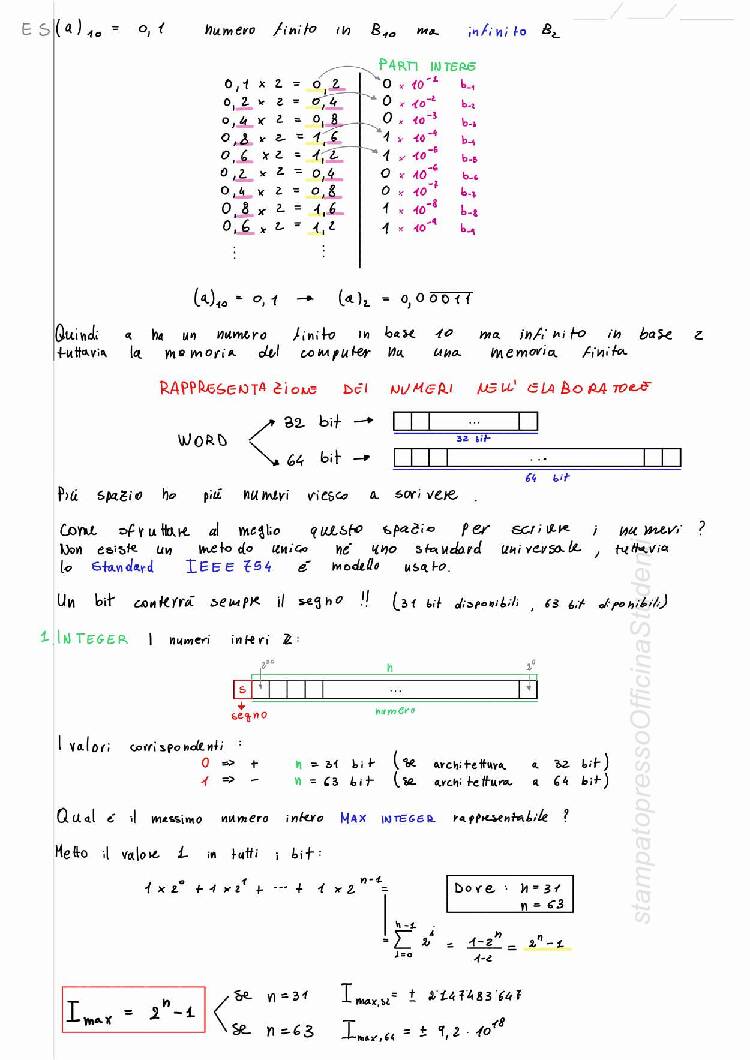 ES (a)₁₀ = 0,1 numero finito in B₁₀ ma infinito B₂
PARTI INTERE
0,1 × 2 = 0,2 0 × 10⁻¹ b-1
0,2 × 2 = 0,4 0 × 10⁻² b-2
0,4 × 2 = 0,8 0 × 10⁻³ b-3
0,8 × 2 = 1,6 1 × 10⁻⁴ b-4
0,6 × 2 = 1,2 1 × 10⁻⁵ b-5
0,2 × 2 = 0,4 0 × 10⁻⁶ b-6
0,4 × 2 = 0,8 0 × 10⁻⁷ b-7
0,8 × 2 = 1,6 1 × 10⁻⁸ b-8
0,6 × 2 = 1,2 1 × 10⁻⁹ b-9
⋮ ⋮
(a)₁₀ = 0,1 → (a)₂ = 0,00̅0̅1̅1̅
Quindi a ha un numero finito in base 10 ma infinito in base 2
tuttavia la memoria del computer ha una memoria finita
RAPPRESENTAZIONE DEI NUMERI NELL'ELABORATORE
32 bit → ...
32 bit
WORD
64 bit → ...
64 bit
Più spazio ho più numeri riesco a scrivere.
Come sfruttare al meglio questo spazio per scrivere i numeri?
Non esiste un metodo unico né uno standard universale, tuttavia
lo Standard IEEE 754 è modello usato.
Un bit conterrà sempre il segno !! (31 bit disponibili, 63 bit diponibili)
1. INTEGER I numeri interi Z:
n
2⁰
S ...
segno numero
I valori corrispondenti:
0 => + n = 31 bit (se architettura a 32 bit)
1 => - n = 63 bit (se architettura a 64 bit)
Qual è il massimo numero intero MAX INTEGER rappresentabile?
Metto il valore 1 in tutti i bit:
1 × 2⁰ + 1 × 2¹ + ... + 1 × 2ⁿ⁻¹ =
Dove: n = 31
n = 63
= ∑ᵢ₌₀ⁿ⁻¹ 2ⁱ = (1-2ⁿ)/(1-2) = 2ⁿ-1
Imax = 2ⁿ-1
se n=31 Imax,32 = ± 2147483647
se n=63 Imax,64 = ± 9,2 · 10¹⁸
stampatopressoOfficinaStudenti